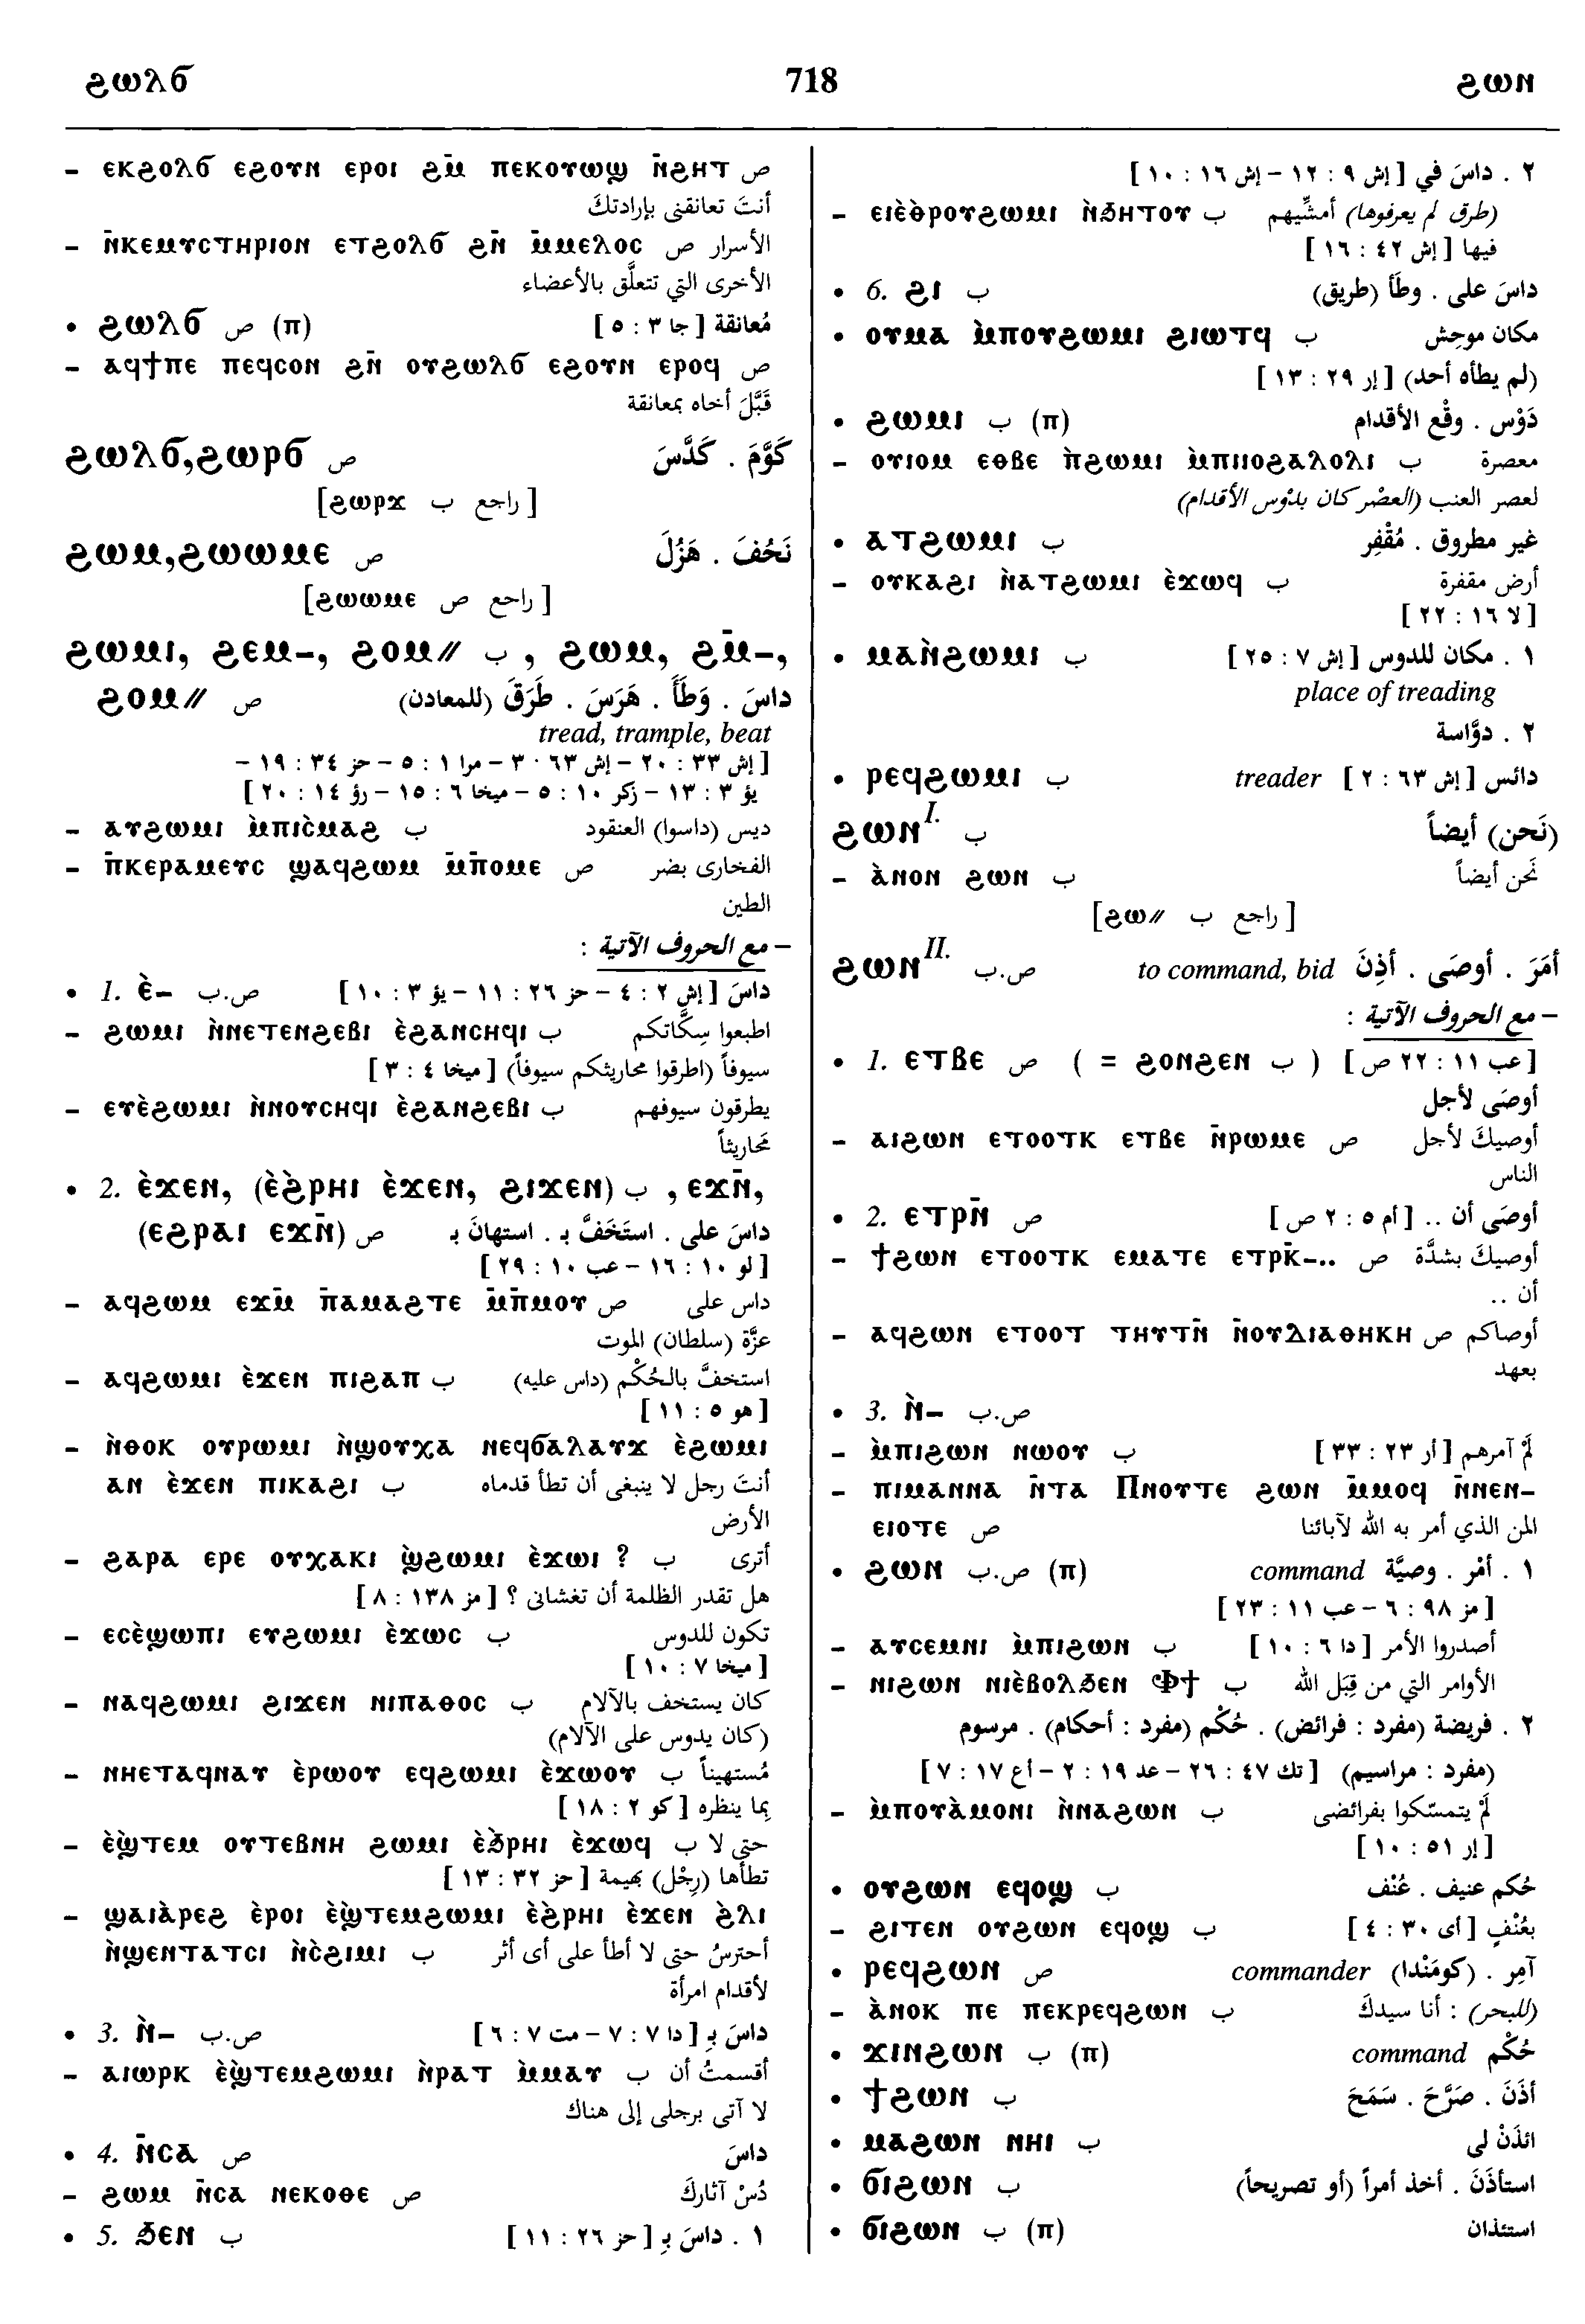 ϩⲱⲗϭ 718 ϩⲱⲛ
– ⲉⲕϩⲟⲗϭ ⲉϩⲟⲩⲛ ⲉⲣⲟⲓ ϩⲙ̄ ⲡⲉⲕⲟⲩⲱϣ ⲛ̄ϩⲏⲧ ص
أنتَ تعانقنى بإرادتكَ
– ⲛ̄ⲕⲉⲙⲩⲥⲧⲏⲣⲓⲟⲛ ⲉⲧϩⲟⲗϭ ϩⲛ̄ ⲙ̄ⲙⲉⲗⲟⲥ ص الأسرار
الأخرى التي تتعلَّق بالأعضاء
• ϩⲱⲗϭ ص (ⲡ) مُعانقة [ جا ٣ : ٥ ]
– ⲁϥϯⲡⲉ ⲡⲉϥⲥⲟⲛ ϩⲛ̄ ⲟⲩϩⲱⲗϭ ⲉϩⲟⲩⲛ ⲉⲣⲟϥ ص
قَبَّلَ أخاه بمعانقة
ϩⲱⲗϭ,ϩⲱⲣϭ ص كَوَّمَ . كَدَّسَ
[ راجع ب ϩⲱⲣϫ]
ϩⲱⲙ,ϩⲱⲱⲙⲉ ص نَحُفَ . هَزُلَ
[ راجع ص ϩⲱⲱⲙⲉ]
ϩⲱⲙⲓ, ϩⲉⲙ–, ϩⲟⲙ// ب , ϩⲱⲙ, ϩⲙ̄–,
ϩⲟⲙ// ص داسَ . وَطَأَ . هَرَسَ . طَرَقَ (للمعادن)
tread, trample, beat
[ إش ٣٣ : ٢٠ – إش ٦٣ : ٣ – مرا ١ : ٥ – حز ٣٤ : ١٩ –
يؤ ٣ : ١٣ – زكر ١٠ : ٥ – ميخا ٦ : ١٥ – رؤ ١٤ : ٢٠ ]
– ⲁⲩϩⲱⲙⲓ ⲙ̀ⲡⲓⲥ̀ⲙⲁϩ ب ديس (داسوا) العنقود
– ⲡ̄ⲕⲉⲣⲁⲙⲉⲩⲥ ϣⲁϥϩⲱⲙ ⲙ̄ⲡ̄ⲟⲙⲉ ص الفخارى بضر
الطين
– مع الحروف الآتية :
• 1. ⲉ̀– ص.ب داسَ [ إش ٢ : ٤ – حز ٢٦ : ١١ – يؤ ٣ : ١٠ ]
– ϩⲱⲙⲓ ⲛ̀ⲛⲉⲧⲉⲛϩⲉⲃⲓ ⲉ̀ϩⲁⲛⲥⲏϥⲓ ب اطبعوا سِكَّاتكم
سيوفاً (اطرقوا محاريثكم سيوفاً) [ ميخا ٤ : ٣ ]
– ⲉⲩⲉ̀ϩⲱⲙⲓ ⲛ̀ⲛⲟⲩⲥⲏϥⲓ ⲉ̀ϩⲁⲛϩⲉⲃⲓ ب يطرقون سيوفهم
مَحاريثاً
• 2. ⲉ̀ϫⲉⲛ, (ⲉ̀ϩ̀ⲣⲏⲓ ⲉ̀ϫⲉⲛ, ϩⲓϫⲉⲛ) ب , ⲉϫⲛ̄,
(ⲉϩⲣⲁⲓ ⲉϫⲛ̄) ص داسَ على . استَخَفَّ بـ . استهانَ بـ
[ لو ١٠ : ١٦ – عب ١٠ : ٢٩ ]
– ⲁϥϩⲱⲙ ⲉϫⲙ̄ ⲡ̄ⲁⲙⲁϩⲧⲉ ⲙ̄ⲡ̄ⲙⲟⲩ ص داس على
عزَّة (سلطان) الموت
– ⲁϥϩⲱⲙⲓ ⲉ̀ϫⲉⲛ ⲡⲓϩⲁⲡ ب استخفَّ بالحُكْم (داس عليه)
[ هو ٥ : ١١ ]
– ⲛ̀ⲑⲟⲕ ⲟⲩⲣⲱⲙⲓ ⲛ̀ϣⲟⲩⲭⲁ ⲛⲉϥϭⲁⲗⲁⲩϫ ⲉ̀ϩⲱⲙⲓ
ⲁⲛ ⲉ̀ϫⲉⲛ ⲡⲓⲕⲁϩⲓ ب أنتَ رجل لا ينبغى أن تطأ قدماه
الأرض
– ϩⲁⲣⲁ ⲉⲣⲉ ⲟⲩⲭⲁⲕⲓ ϣ̀ϩⲱⲙⲓ ⲉ̀ϫⲱⲓ ? ب أترى
هل تقدر الظلمة أن تغشانى ؟ [ مز ١٣٨ : ٨ ]
– ⲉⲥⲉ̀ϣⲱⲡⲓ ⲉⲩϩⲱⲙⲓ ⲉ̀ϫⲱⲥ ب تكون للدوس
[ ميخا ٧ : ١٠ ]
– ⲛⲁϥϩⲱⲙⲓ ϩⲓϫⲉⲛ ⲛⲓⲡⲁⲑⲟⲥ ب كان يستخف بالآلام
(كان يدوس على الآلام)
– ⲛⲏⲉⲧⲁϥⲛⲁⲩ ⲉ̀ⲣⲱⲟⲩ ⲉϥϩⲱⲙⲓ ⲉ̀ϫⲱⲟⲩ ب مُستهيناً
بما ينظره [ كو ٢ : ١٨ ]
– ⲉ̀ϣ̀ⲧⲉⲙ ⲟⲩⲧⲉⲃⲛⲏ ϩⲱⲙⲓ ⲉ̀ϧⲣⲏⲓ ⲉ̀ϫⲱϥ ب حتى لا
تطأها (رِجْل) بهيمة [ حز ٣٢ : ١٣ ]
– ϣⲁⲓⲁ̀ⲣⲉϩ ⲉ̀ⲣⲟⲓ ⲉ̀ϣ̀ⲧⲉⲙϩⲱⲙⲓ ⲉ̀ϩ̀ⲣⲏⲓ ⲉ̀ϫⲉⲛ ϩ̀ⲗⲓ
ⲛ̀ϣⲉⲛⲧⲁⲧⲥⲓ ⲛ̀ⲥ̀ϩⲓⲙⲓ ب أحترسُ حتى لا أطأ على أى أثر
لأقدام امرأة
• 3. ⲛ̀– ص.ب داسَ بـِ [ دا ٧ : ٧ – مت ٧ : ٦ ]
– ⲁⲓⲱⲣⲕ ⲉ̀ϣ̀ⲧⲉⲙϩⲱⲙⲓ ⲛ̀ⲣⲁⲧ ⲙ̀ⲙⲁⲩ ب أقسمتُ أن
لا آتى برجلى إلى هناك
• 4. ⲛ̄ⲥⲁ ص داسَ
– ϩⲱⲙ ⲛ̄ⲥⲁ ⲛⲉⲕⲟⲑⲉ ص دُسْ آثاركَ
• 5. ϧⲉⲛ ب ١ . داسَ بـِ [ حز ٢٦ : ١١ ]
٢ . داسَ في [ إش ٩ : ١٢ – إش ١٦ : ١٠ ]
– ⲉⲓⲉ̀ⲑⲣⲟⲩϩⲱⲙⲓ ⲛ̀ϧⲏⲧⲟⲩ ب (طرق لم يعرفوها) أمشِّيهم
فيها [ إش ٤٢ : ١٦ ]
• 6. ϩⲓ ب داسَ على . وطأ (طريق)
• ⲟⲩⲙⲁ ⲙ̀ⲡⲟⲩϩⲱⲙⲓ ϩⲓⲱⲧϥ ب مكان موحِش
(لم يطأه أحد) [ إر ٢٩ : ١٣ ]
• ϩⲱⲙⲓ ب (ⲡ) دَوْس . وقْع الأقدام
– ⲟⲩⲓⲟⲙ ⲉⲑⲃⲉ ⲡ̀ϩⲱⲙⲓ ⲙ̀ⲡⲓⲓⲟϩⲁⲗⲟⲗⲓ ب معصرة
لعصر العنب (العصْر كان بدَوْس الأقدام)
• ⲁⲧϩⲱⲙⲓ ب غير مطروق . مُقْفِر
– ⲟⲩⲕⲁϩⲓ ⲛ̀ⲁⲧϩⲱⲙⲓ ⲉ̀ϫⲱϥ ب أرض مقفرة
[ لا ١٦ : ٢٢ ]
• ⲙⲁⲛ̀ϩⲱⲙⲓ ب ١ . مكان للدوس [ إش ٧ : ٢٥ ]
place of treading
٢ . دوَّاسة
• ⲣⲉϥϩⲱⲙⲓ ب دائس [ إش ٦٣ : ٢ ] treader
ϩⲱⲛ I. ب (نَحن) أيضاً
– ⲁ̀ⲛⲟⲛ ϩⲱⲛ ب نَحن أيضاً
[ راجع ب //ϩⲱ]
ϩⲱⲛ II. ص.ب أمَرَ . أوصَى . أذِنَ to command, bid
– مع الحروف الآتية :
• 1. ⲉⲧⲃⲉ ص ( = ϩⲟⲛϩⲉⲛ ب ) [ عب ١١ : ٢٢ ص ]
أوصَى لأجل
– ⲁⲓϩⲱⲛ ⲉⲧⲟⲟⲧⲕ ⲉⲧⲃⲉ ⲛ̄ⲣⲱⲙⲉ ص أوصيكَ لأجل
الناس
• 2. ⲉⲧⲣⲛ̄ ص أوصَى أن .. [ أم ٥ : ٢ ص ]
– ϯϩⲱⲛ ⲉⲧⲟⲟⲧⲕ ⲉⲙⲁⲧⲉ ⲉⲧⲣⲕ̄–.. ص أوصيكَ بشدَّة
أن ..
– ⲁϥϩⲱⲛ ⲉⲧⲟⲟⲧ ⲧⲏⲩⲧⲛ̄ ⲛ̄ⲟⲩⲇⲓⲁⲑⲏⲕⲏ ص أوصاكم
بعهد
• 3. ⲛ̀– ص.ب
– ⲙ̀ⲡⲓϩⲱⲛ ⲛⲱⲟⲩ ب لَمْ آمرهم [ أر ٢٣ : ٣٣ ]
– ⲡⲓⲙⲁⲛⲛⲁ ⲛ̄ⲧⲁ Ⲡⲛⲟⲩⲧⲉ ϩⲱⲛ ⲙ̄ⲙⲟϥ ⲛ̄ⲛⲉⲛ–
ⲉⲓⲟⲧⲉ ص المن الذي أمر به الله لآبائنا
• ϩⲱⲛ ص.ب (ⲡ) ١ . أمْر . وصيَّة command
[ مز ٩٨ : ٦ – عب ١١ : ٢٣ ]
– ⲁⲩⲥⲉⲙⲛⲓ ⲙ̀ⲡⲓϩⲱⲛ ب أصدروا الأمر [ دا ٦ : ١٠ ]
– ⲛⲓϩⲱⲛ ⲛⲓⲉ̀ⲃⲟⲗϧⲉⲛ Ⲫϯ ب الأوامر التي من قِبَل الله
٢ . فريضة (مفرد : فرائض) . حُكْم (مفرد : أحكام) . مرسوم
(مفرد : مراسيم) [ تك ٤٧ : ٢٦ – عد ١٩ : ٢ – أع ١٧ : ٧ ]
– ⲙ̀ⲡⲟⲩⲁ̀ⲙⲟⲛⲓ ⲛ̀ⲛⲁϩⲱⲛ ب لَمْ يتمسّكوا بفرائضى
[ إر ٥١ : ١٠ ]
• ⲟⲩϩⲱⲛ ⲉϥⲟϣ ب حُكم عنيف . عُنْف
– ϩⲓⲧⲉⲛ ⲟⲩϩⲱⲛ ⲉϥⲟϣ ب بعُنْفٍ [ أى ٣٠ : ٤ ]
• ⲣⲉϥϩⲱⲛ ص آمِر . (كومَنْدا) commander
– ⲁ̀ⲛⲟⲕ ⲡⲉ ⲡⲉⲕⲣⲉϥϩⲱⲛ ب (للبحر) : أنا سيدكَ
• ϫⲓⲛϩⲱⲛ ب (ⲡ) حُكْم command
• ϯϩⲱⲛ ب أذَنَ . صَرَّحَ . سَمَحَ
• ⲙⲁϩⲱⲛ ⲛⲏⲓ ب ائذَنْ لى
• ϭⲓϩⲱⲛ ب استأذَنَ . أخذ أمراً (أو تصريحاً)
• ϭⲓϩⲱⲛ ب (ⲡ) استئذان